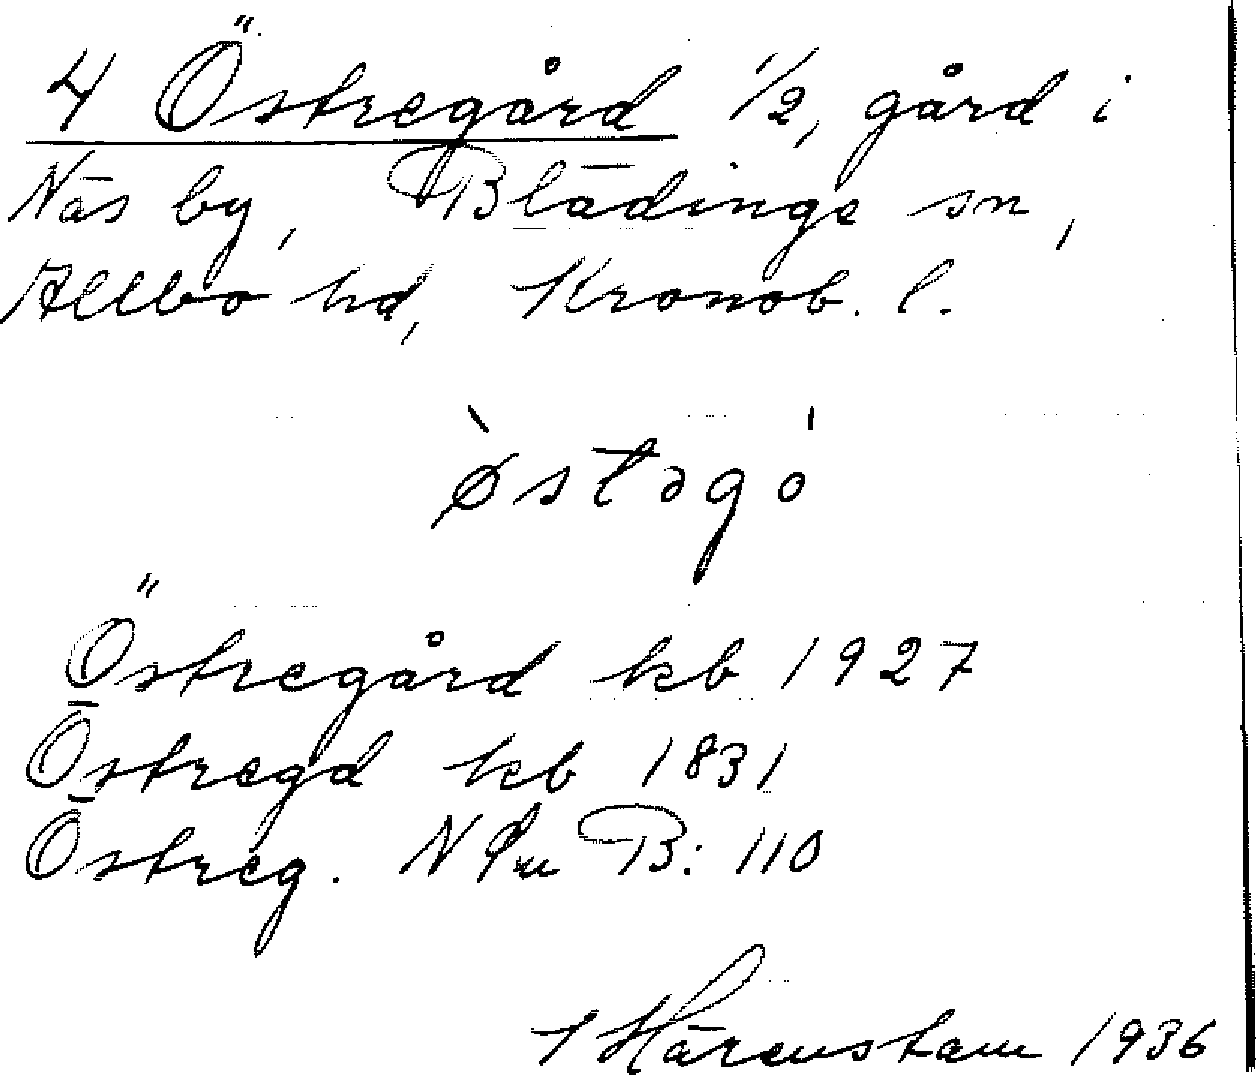 4 Östregård 1/2, gård i
Näs by, Blädinge sn,
Allbo hd, Kronob. l.
`østəgo´
Östregård kb 1927
Östregd kb 1831
Östreg. N B: 110
Härenstam 1936